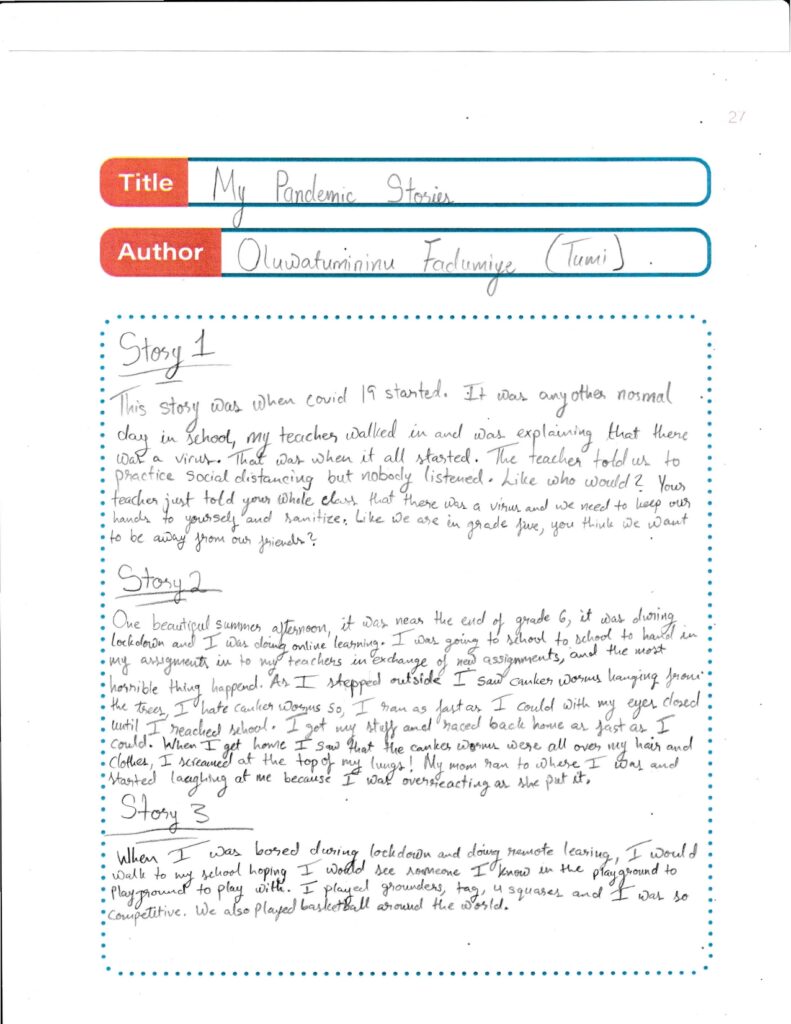 27
Title My Pandemic Stories
Author Oluwatumininu Fadumiye (Tumi).
Story 1
This story was when covid 19 started. It was any other normal
day in school, my teacher walked in and was explaining that there
was a virus. That was when it all started. The teacher told us to
practice social distancing but nobody listened. Like who would? Your
teacher just told your whole class that there was a virus and we need to keep our
hands to yourself and sanitize. Like we are in grade five, you think we want
to be away from our friends?
Story 2
One beautiful summer afternoon, it was near the end of grade 6, it was during
lockdown and I was doing online learning. I was going to school to school to hand in
my assignments in to my teachers in exchange of new assignments, and the most
horrible thing happend. As I stepped outside I saw canker worms hanging from
the trees, I hate canker worms so, I ran as fast as I could with my eyes closed
until I reached school. I got my stuff and raced back home as fast as I
could. When I get home I saw that the canker worms were all over my hair and
clothes, I screamed at the top of my lungs! My mom ran to where I was and
started laughing at me because I was overreacting as she put it.
Story 3
When I was bored during lockdown and doing remote learing, I would
walk to my school hoping I would see someone I know in the playground to
playground to play with. I played grounders, tag, 4 squares and I was so
competitive. We also played basketball around the world.